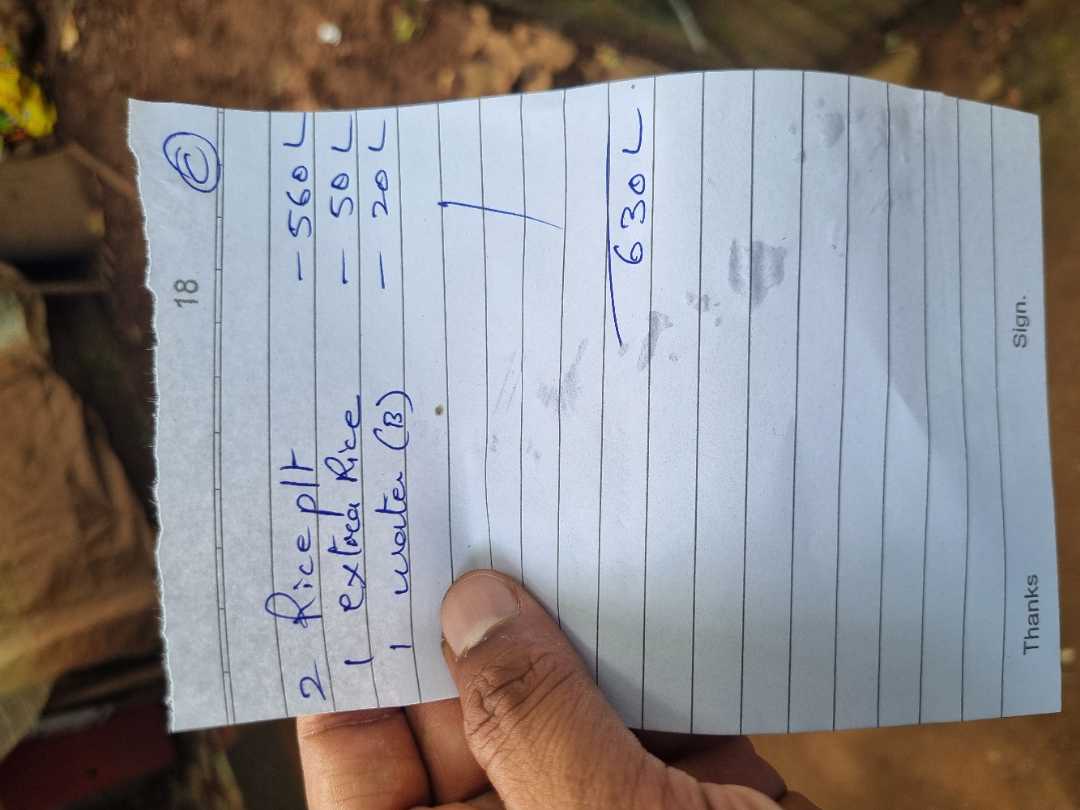 18
2 Rice plt - 560 L
1 extra Rice - 50 L
1 water (B) - 20 L
630 L
Thanks Sign.